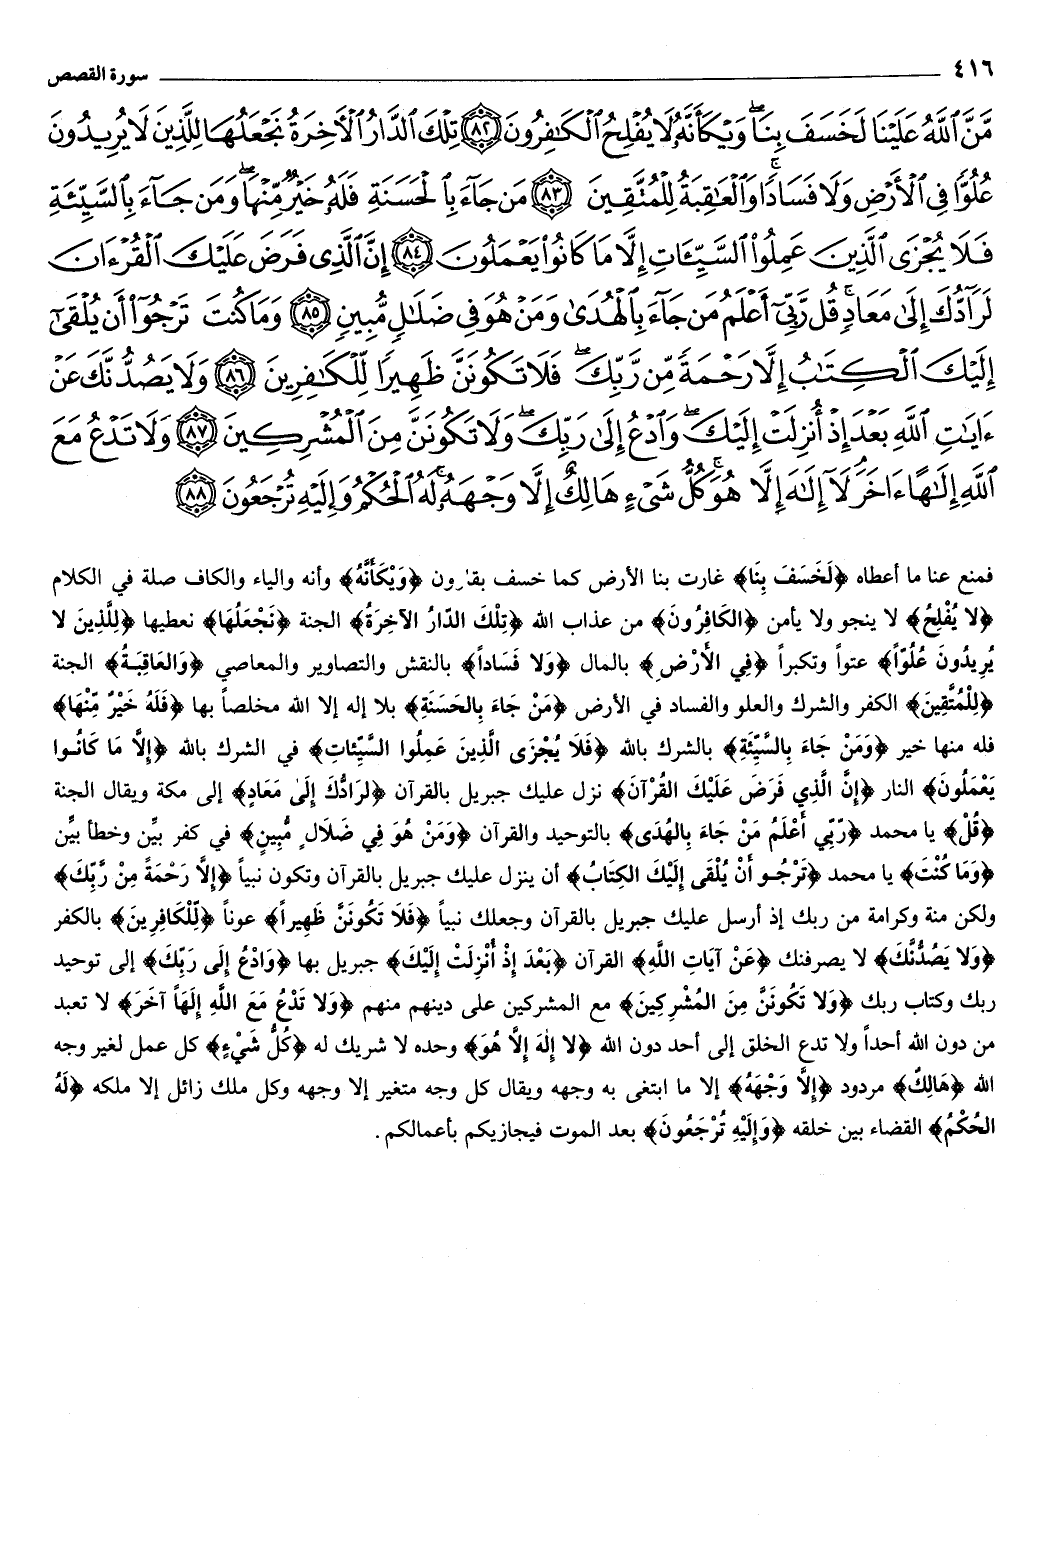 ٤١٦ سورة القصص
مَّنَّ ٱللَّهُ عَلَيْنَا لَخَسَفَ بِنَا ۖ وَيْكَأَنَّهُۥ لَا يُفْلِحُ ٱلْكَٰفِرُونَ ٨٢ تِلْكَ ٱلدَّارُ ٱلْأَخِرَةُ نَجْعَلُهَا لِلَّذِينَ لَا يُرِيدُونَ
عُلُوًّا فِى ٱلْأَرْضِ وَلَا فَسَادًا ۚ وَٱلْعَٰقِبَةُ لِلْمُتَّقِينَ ٨٣ مَن جَآءَ بِٱلْحَسَنَةِ فَلَهُۥ خَيْرٌ مِّنْهَا ۖ وَمَن جَآءَ بِٱلسَّيِّئَةِ
فَلَا يُجْزَى ٱلَّذِينَ عَمِلُوا۟ ٱلسَّيِّـَٔاتِ إِلَّا مَا كَانُوا۟ يَعْمَلُونَ ٨٤ إِنَّ ٱلَّذِى فَرَضَ عَلَيْكَ ٱلْقُرْءَانَ
لَرَآدُّكَ إِلَىٰ مَعَادٍ ۚ قُل رَّبِّىٓ أَعْلَمُ مَن جَآءَ بِٱلْهُدَىٰ وَمَنْ هُوَ فِى ضَلَٰلٍ مُّبِينٍ ٨٥ وَمَا كُنتَ تَرْجُوٓا۟ أَن يُلْقَىٰٓ
إِلَيْكَ ٱلْكِتَٰبُ إِلَّا رَحْمَةً مِّن رَّبِّكَ ۖ فَلَا تَكُونَنَّ ظَهِيرًا لِّلْكَٰفِرِينَ ٨٦ وَلَا يَصُدُّنَّكَ عَنْ
ءَايَٰتِ ٱللَّهِ بَعْدَ إِذْ أُنزِلَتْ إِلَيْكَ ۖ وَٱدْعُ إِلَىٰ رَبِّكَ ۖ وَلَا تَكُونَنَّ مِنَ ٱلْمُشْرِكِينَ ٨٧ وَلَا تَدْعُ مَعَ
ٱللَّهِ إِلَٰهًا ءَاخَرَ ۘ لَآ إِلَٰهَ إِلَّا هُوَ ۚ كُلُّ شَىْءٍ هَالِكٌ إِلَّا وَجْهَهُۥ ۚ لَهُ ٱلْحُكْمُ وَإِلَيْهِ تُرْجَعُونَ ٨٨
فمنع عنا ما أعطاه ﴿لَخَسَفَ بِنَا﴾ غارت بنا الأرض كما خسف بقارون ﴿وَيْكَأَنَّهُ﴾ وأنه والياء والكاف صلة في الكلام
﴿لا يُفْلِحُ﴾ لا ينجو ولا يأمن ﴿الكَافِرُونَ﴾ من عذاب الله ﴿تِلْكَ الدّارُ الآخِرَةُ﴾ الجنة ﴿نَجْعَلُهَا﴾ نعطيها ﴿لِلَّذِينَ لا
يُرِيدُونَ عُلُوّاً﴾ عتواً وتكبراً ﴿فِي الأَرْضِ﴾ بالمال ﴿وَلا فَسَاداً﴾ بالنقش والتصاوير والمعاصي ﴿وَالعَاقِبَةُ﴾ الجنة
﴿لِلْمُتَّقِينَ﴾ الكفر والشرك والعلو والفساد في الأرض ﴿مَنْ جَاءَ بِالحَسَنَةِ﴾ بلا إله إلا الله مخلصاً بها ﴿فَلَهُ خَيْرٌ مِّنْهَا﴾
فله منها خير ﴿وَمَنْ جَاءَ بِالسَّيِّئَةِ﴾ بالشرك بالله ﴿فَلَا يُجْزَى الَّذِينَ عَمِلُوا السَّيِّئاتِ﴾ في الشرك بالله ﴿إِلَّا مَا كَانُوا
يَعْمَلُونَ﴾ النار ﴿إِنَّ الَّذِي فَرَضَ عَلَيْكَ القُرْآنَ﴾ نزل عليك جبريل بالقرآن ﴿لرَادُّكَ إِلَىٰ مَعَادٍ﴾ إلى مكة ويقال الجنة
﴿قُلْ﴾ يا محمد ﴿رَّبِّي أَعْلَمُ مَنْ جَاءَ بِالهُدَى﴾ بالتوحيد والقرآن ﴿وَمَنْ هُوَ فِي ضَلَالٍ مُّبِينٍ﴾ في كفر بيِّن وخطأ بيِّن
﴿وَمَا كُنْتَ﴾ يا محمد ﴿تَرْجُو أَنْ يُلْقَى إِلَيْكَ الكِتَابُ﴾ أن ينزل عليك جبريل بالقرآن وتكون نبياً ﴿إِلَّا رَحْمَةً مِنْ رَّبِّكَ﴾
ولكن منة وكرامة من ربك إذ أرسل عليك جبريل بالقرآن وجعلك نبياً ﴿فَلَا تَكُونَنَّ ظَهِيراً﴾ عوناً ﴿لِّلْكَافِرِينَ﴾ بالكفر
﴿وَلا يَصُدُّنَّكَ﴾ لا يصرفنك ﴿عَنْ آيَاتِ اللَّهِ﴾ القرآن ﴿بَعْدَ إِذْ أُنْزِلَتْ إِلَيْكَ﴾ جبريل بها ﴿وَادْعُ إِلَى رَبِّكَ﴾ إلى توحيد
ربك وكتاب ربك ﴿وَلا تَكُونَنَّ مِنَ المُشْرِكِينَ﴾ مع المشركين على دينهم منهم ﴿وَلا تَدْعُ مَعَ اللَّهِ إِلَهاً آخَرَ﴾ لا تعبد
من دون الله أحداً ولا تدع الخلق إلى أحد دون الله ﴿لا إِلَهَ إِلَّا هُوَ﴾ وحده لا شريك له ﴿كُلُّ شَيْءٍ﴾ كل عمل لغير وجه
الله ﴿هَالِكٌ﴾ مردود ﴿إِلَّا وَجْهَهُ﴾ إلا ما ابتغى به وجهه ويقال كل وجه متغير إلا وجهه وكل ملك زائل إلا ملكه ﴿لَهُ
الحُكْمُ﴾ القضاء بين خلقه ﴿وَإِلَيْهِ تُرْجَعُونَ﴾ بعد الموت فيجازيكم بأعمالكم.